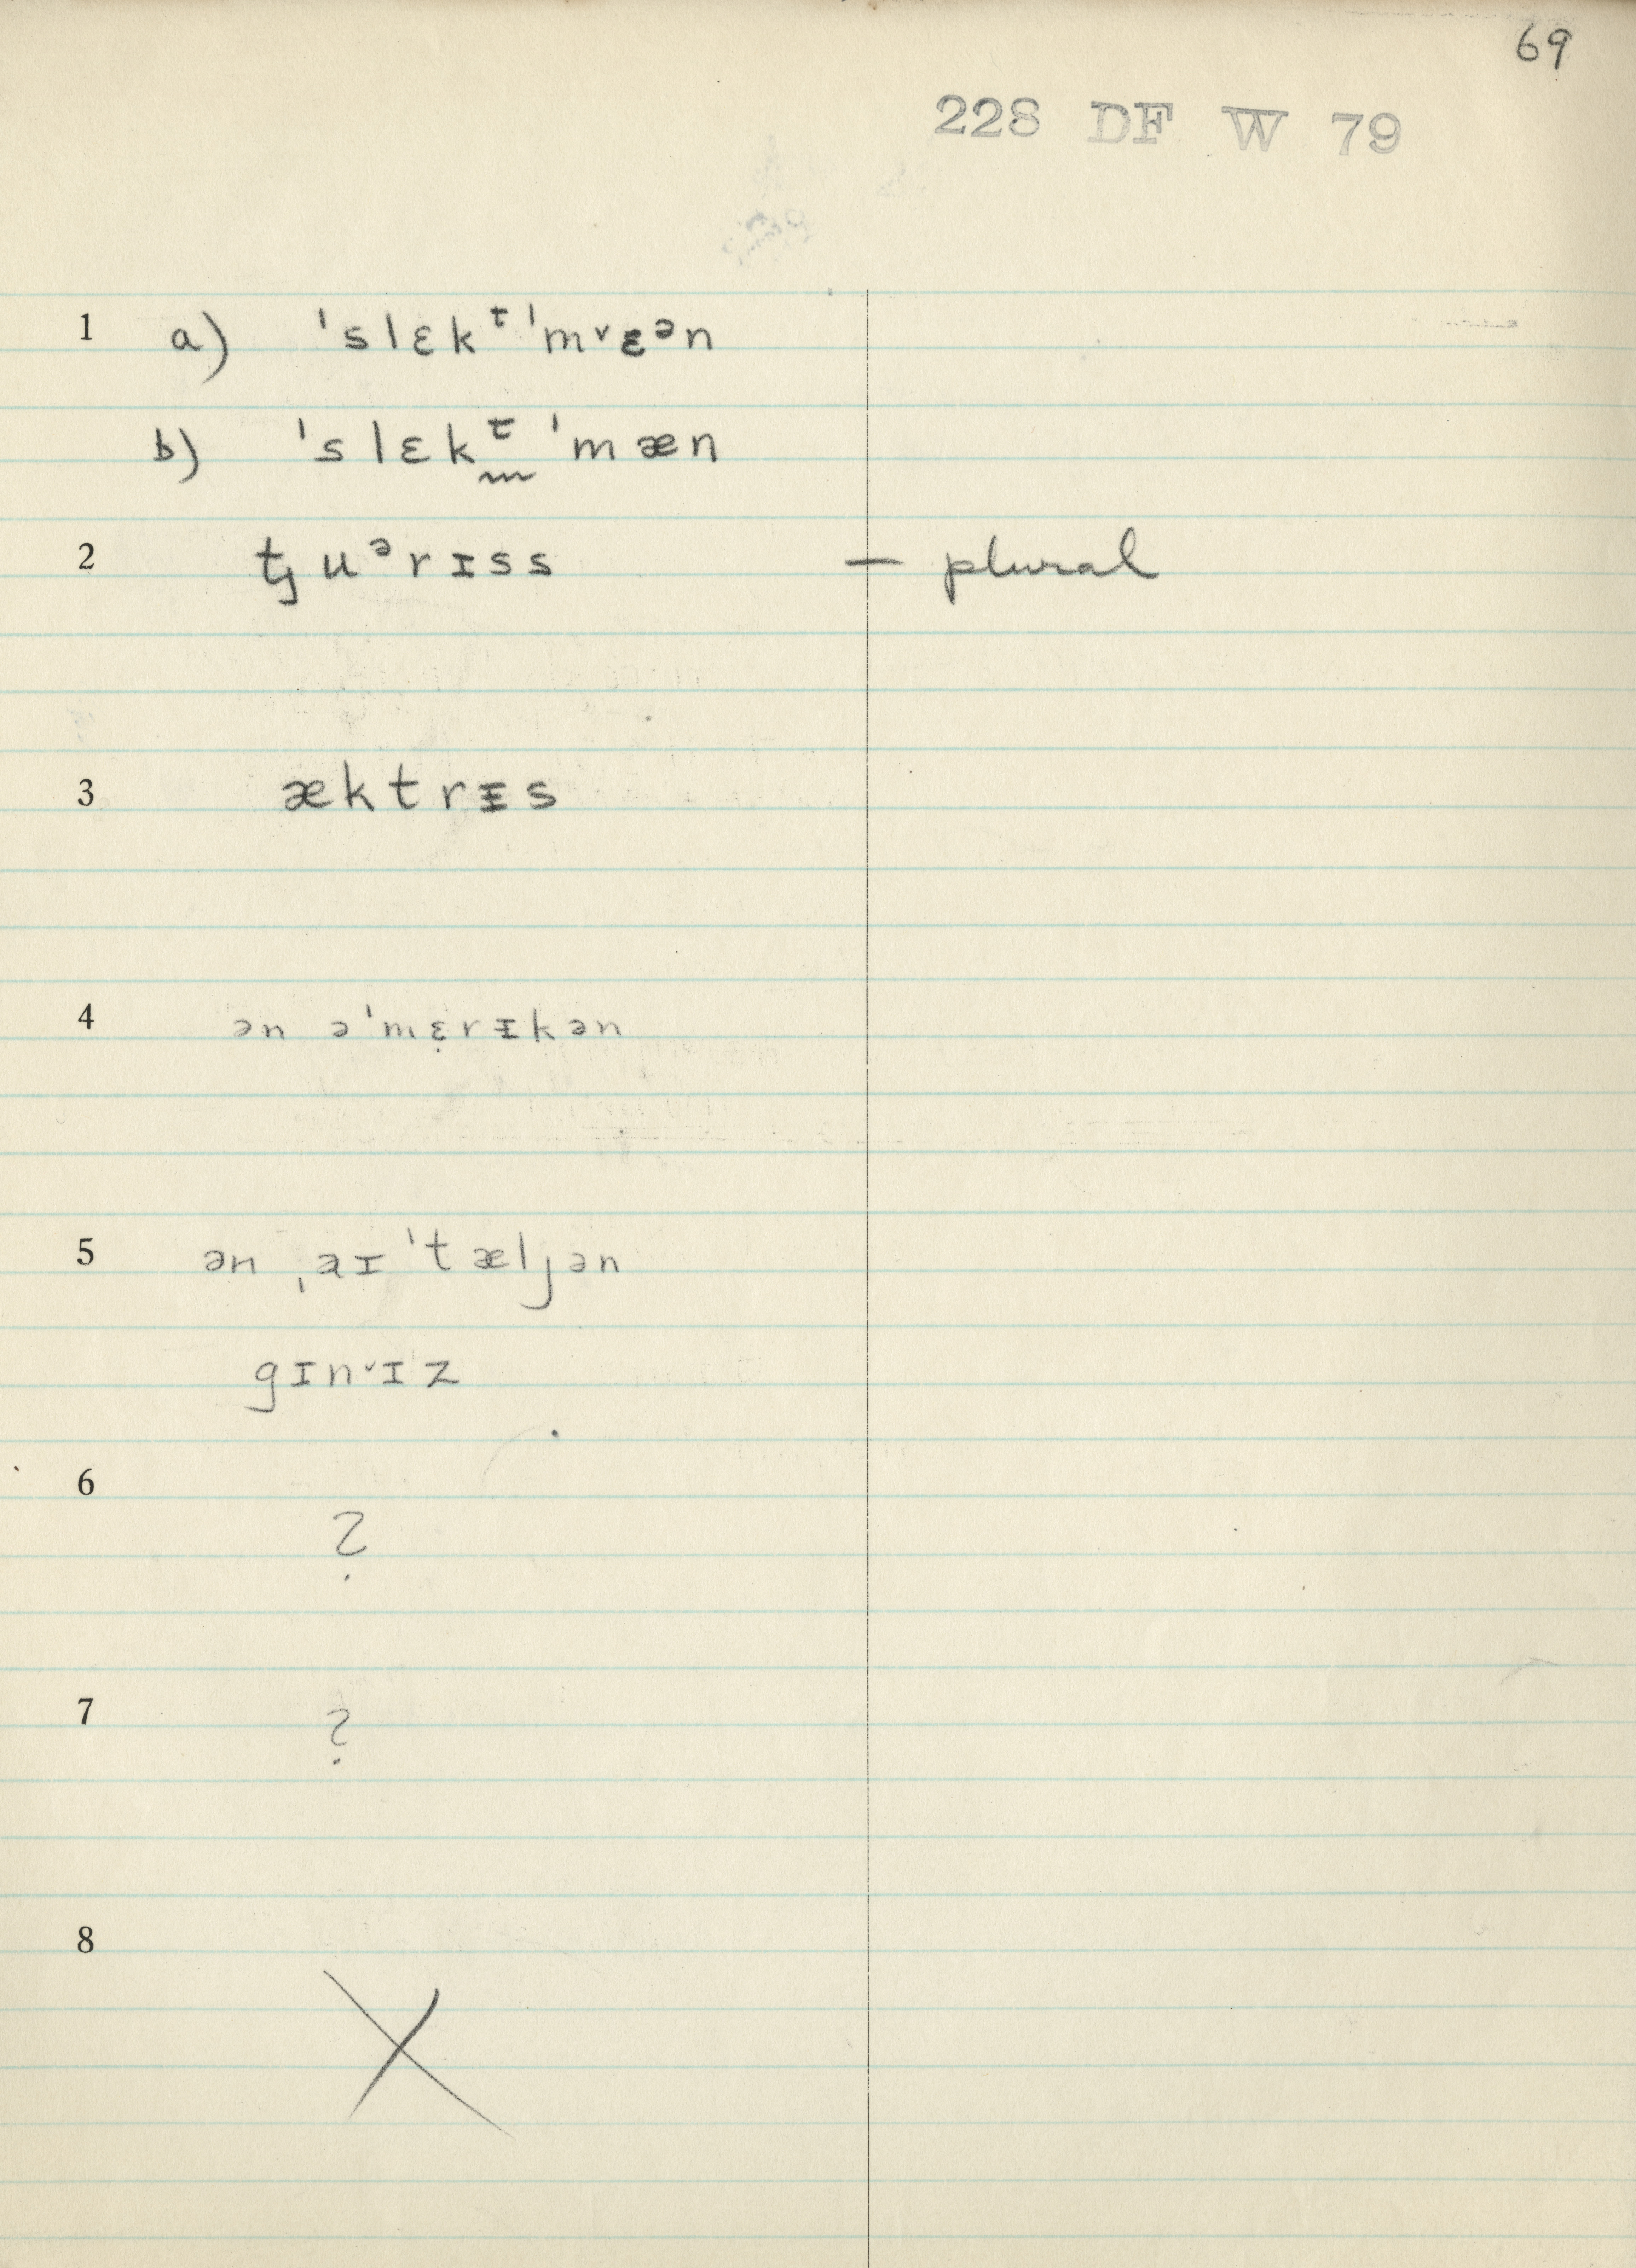 69
228 DF W 79
1 a) ˈslɛkᵗˈmᵛɛᵊn
b) ˈslɛkᵗˈmæn
2 tȷuᵊrɪss — plural
3 æktrɪ̵s
4 ən əˈmɛ̣rɪ̵kən
5 ən ˌaɪˈtæljən
gɪnᵛɪz
6
?
7 ?
8
X